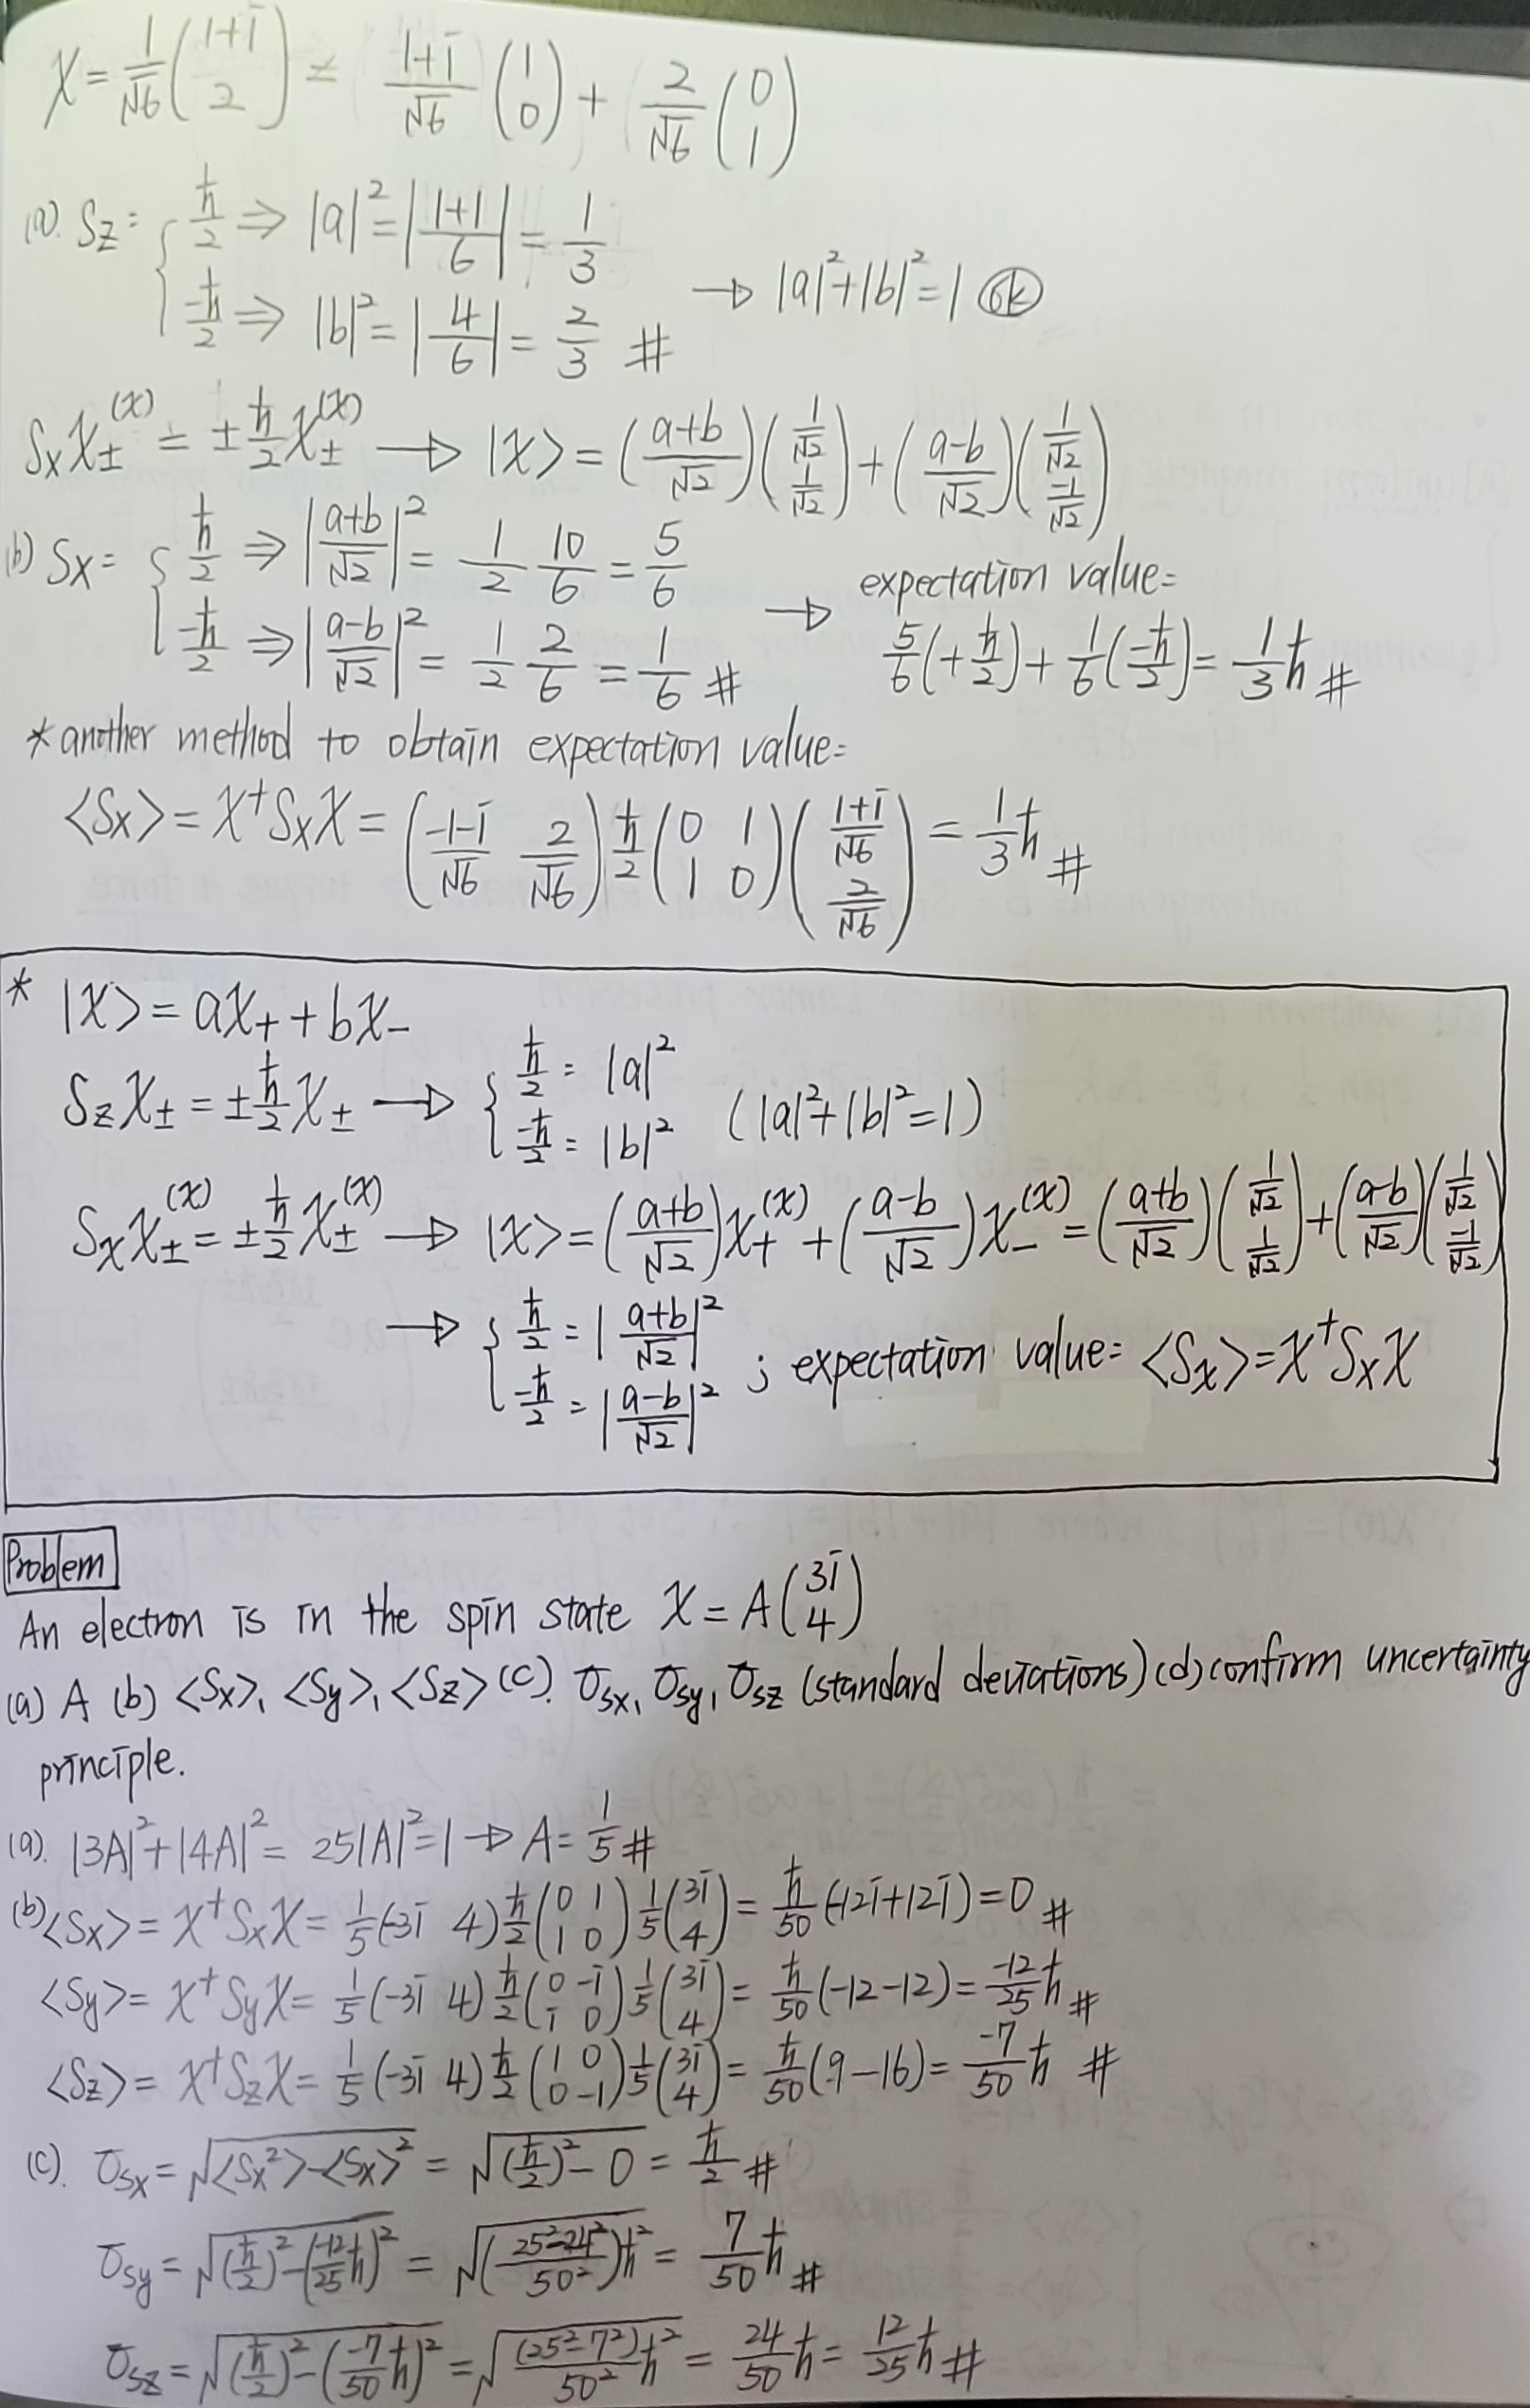 χ = 1/√6 (1+i / 2) = (1+i)/√6 (1 / 0) + 2/√6 (0 / 1)
(a). Sz = { ħ/2 ⇒ |a|² = |(1+1)/6| = 1/3
-ħ/2 ⇒ |b|² = |4/6| = 2/3 # → |a|²+|b|² = 1 ok
Sxχ±^(x) = ±ħ/2 χ±^(x) → |χ> = ((a+b)/√2)(1/√2 / 1/√2) + ((a-b)/√2)(1/√2 / -1/√2)
(b) Sx = { ħ/2 ⇒ |(a+b)/√2|² = 1/2 10/6 = 5/6
-ħ/2 ⇒ |(a-b)/√2|² = 1/2 2/6 = 1/6 #
→ expectation value=
5/6(+ħ/2) + 1/6(-ħ/2) = 1/3 ħ #
*another method to obtain expectation value=
<Sx> = χ†Sxχ = ((-1-i)/√6 2/√6) ħ/2 (0 1 / 1 0) ((1+i)/√6 / 2/√6) = 1/3 ħ #
* |χ> = aχ+ + bχ-
Szχ± = ±ħ/2 χ± → { ħ/2 = |a|²
-ħ/2 = |b|² (|a|²+|b|²=1)
Sxχ±^(x) = ±ħ/2 χ±^(x) → |χ> = ((a+b)/√2)χ+^(x) + ((a-b)/√2)χ-^(x) = ((a+b)/√2)(1/√2 / 1/√2) + ((a-b)/√2)(1/√2 / -1/√2)
→ { ħ/2 = |(a+b)/√2|²
-ħ/2 = |(a-b)/√2|² ; expectation value= <Sx> = χ†Sxχ
Problem
An electron is in the spin state χ = A(3i / 4)
(a) A (b) <Sx>, <Sy>, <Sz> (c). σSx, σSy, σSz (standard deviations) (d) confirm uncertainty
principle.
(a). |3A|²+|4A|² = 25|A|² = 1 → A = 1/5 #
(b) <Sx> = χ†Sxχ = 1/5 (-3i 4) ħ/2 (0 1 / 1 0) 1/5 (3i / 4) = ħ/50 (-12i+12i) = 0 #
<Sy> = χ†Syχ = 1/5 (-3i 4) ħ/2 (0 -i / i 0) 1/5 (3i / 4) = ħ/50 (-12-12) = -12/25 ħ #
<Sz> = χ†Szχ = 1/5 (-3i 4) ħ/2 (1 0 / 0 -1) 1/5 (3i / 4) = ħ/50 (9-16) = -7/50 ħ #
(c). σSx = √(<Sx²>-<Sx>²) = √((ħ/2)²-0) = ħ/2 #
σSy = √((ħ/2)²-(-12/25 ħ)²) = √(((25²-24²)/50²)ħ²) = 7/50 ħ #
σSz = √((ħ/2)²-(-7/50 ħ)²) = √((25²-7²)/50² ħ²) = 24/50 ħ = 12/25 ħ #